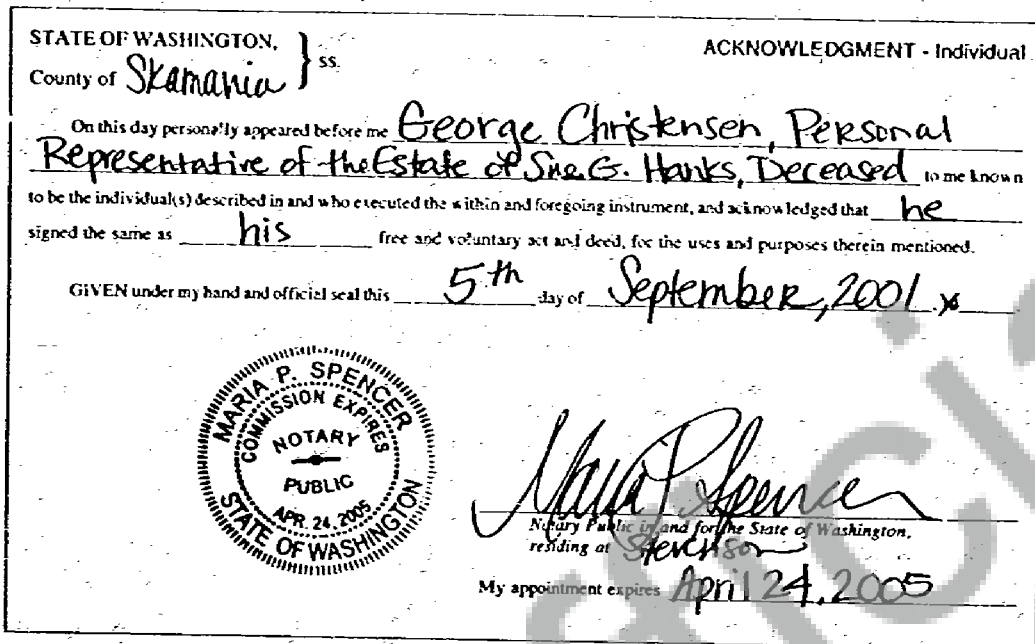 STATE OF WASHINGTON,
County of Skamania
ss.
ACKNOWLEDGMENT - Individual
On this day personally appeared before me George Christensen, Personal
Representative of the Estate of Sue G. Hanks, Deceased to me known
to be the individual(s) described in and who executed the within and foregoing instrument, and acknowledged that he
signed the same as his free and voluntary act and deed, for the uses and purposes therein mentioned.
GIVEN under my hand and official seal this 5th day of September, 2001
MARIA P. SPENCER
COMMISSION EXPIRES
NOTARY
PUBLIC
APR. 24, 2005
STATE OF WASHINGTON
Maria P Spencer
Notary Public in and for the State of Washington,
residing at Stevenson
My appointment expires April 24, 2005